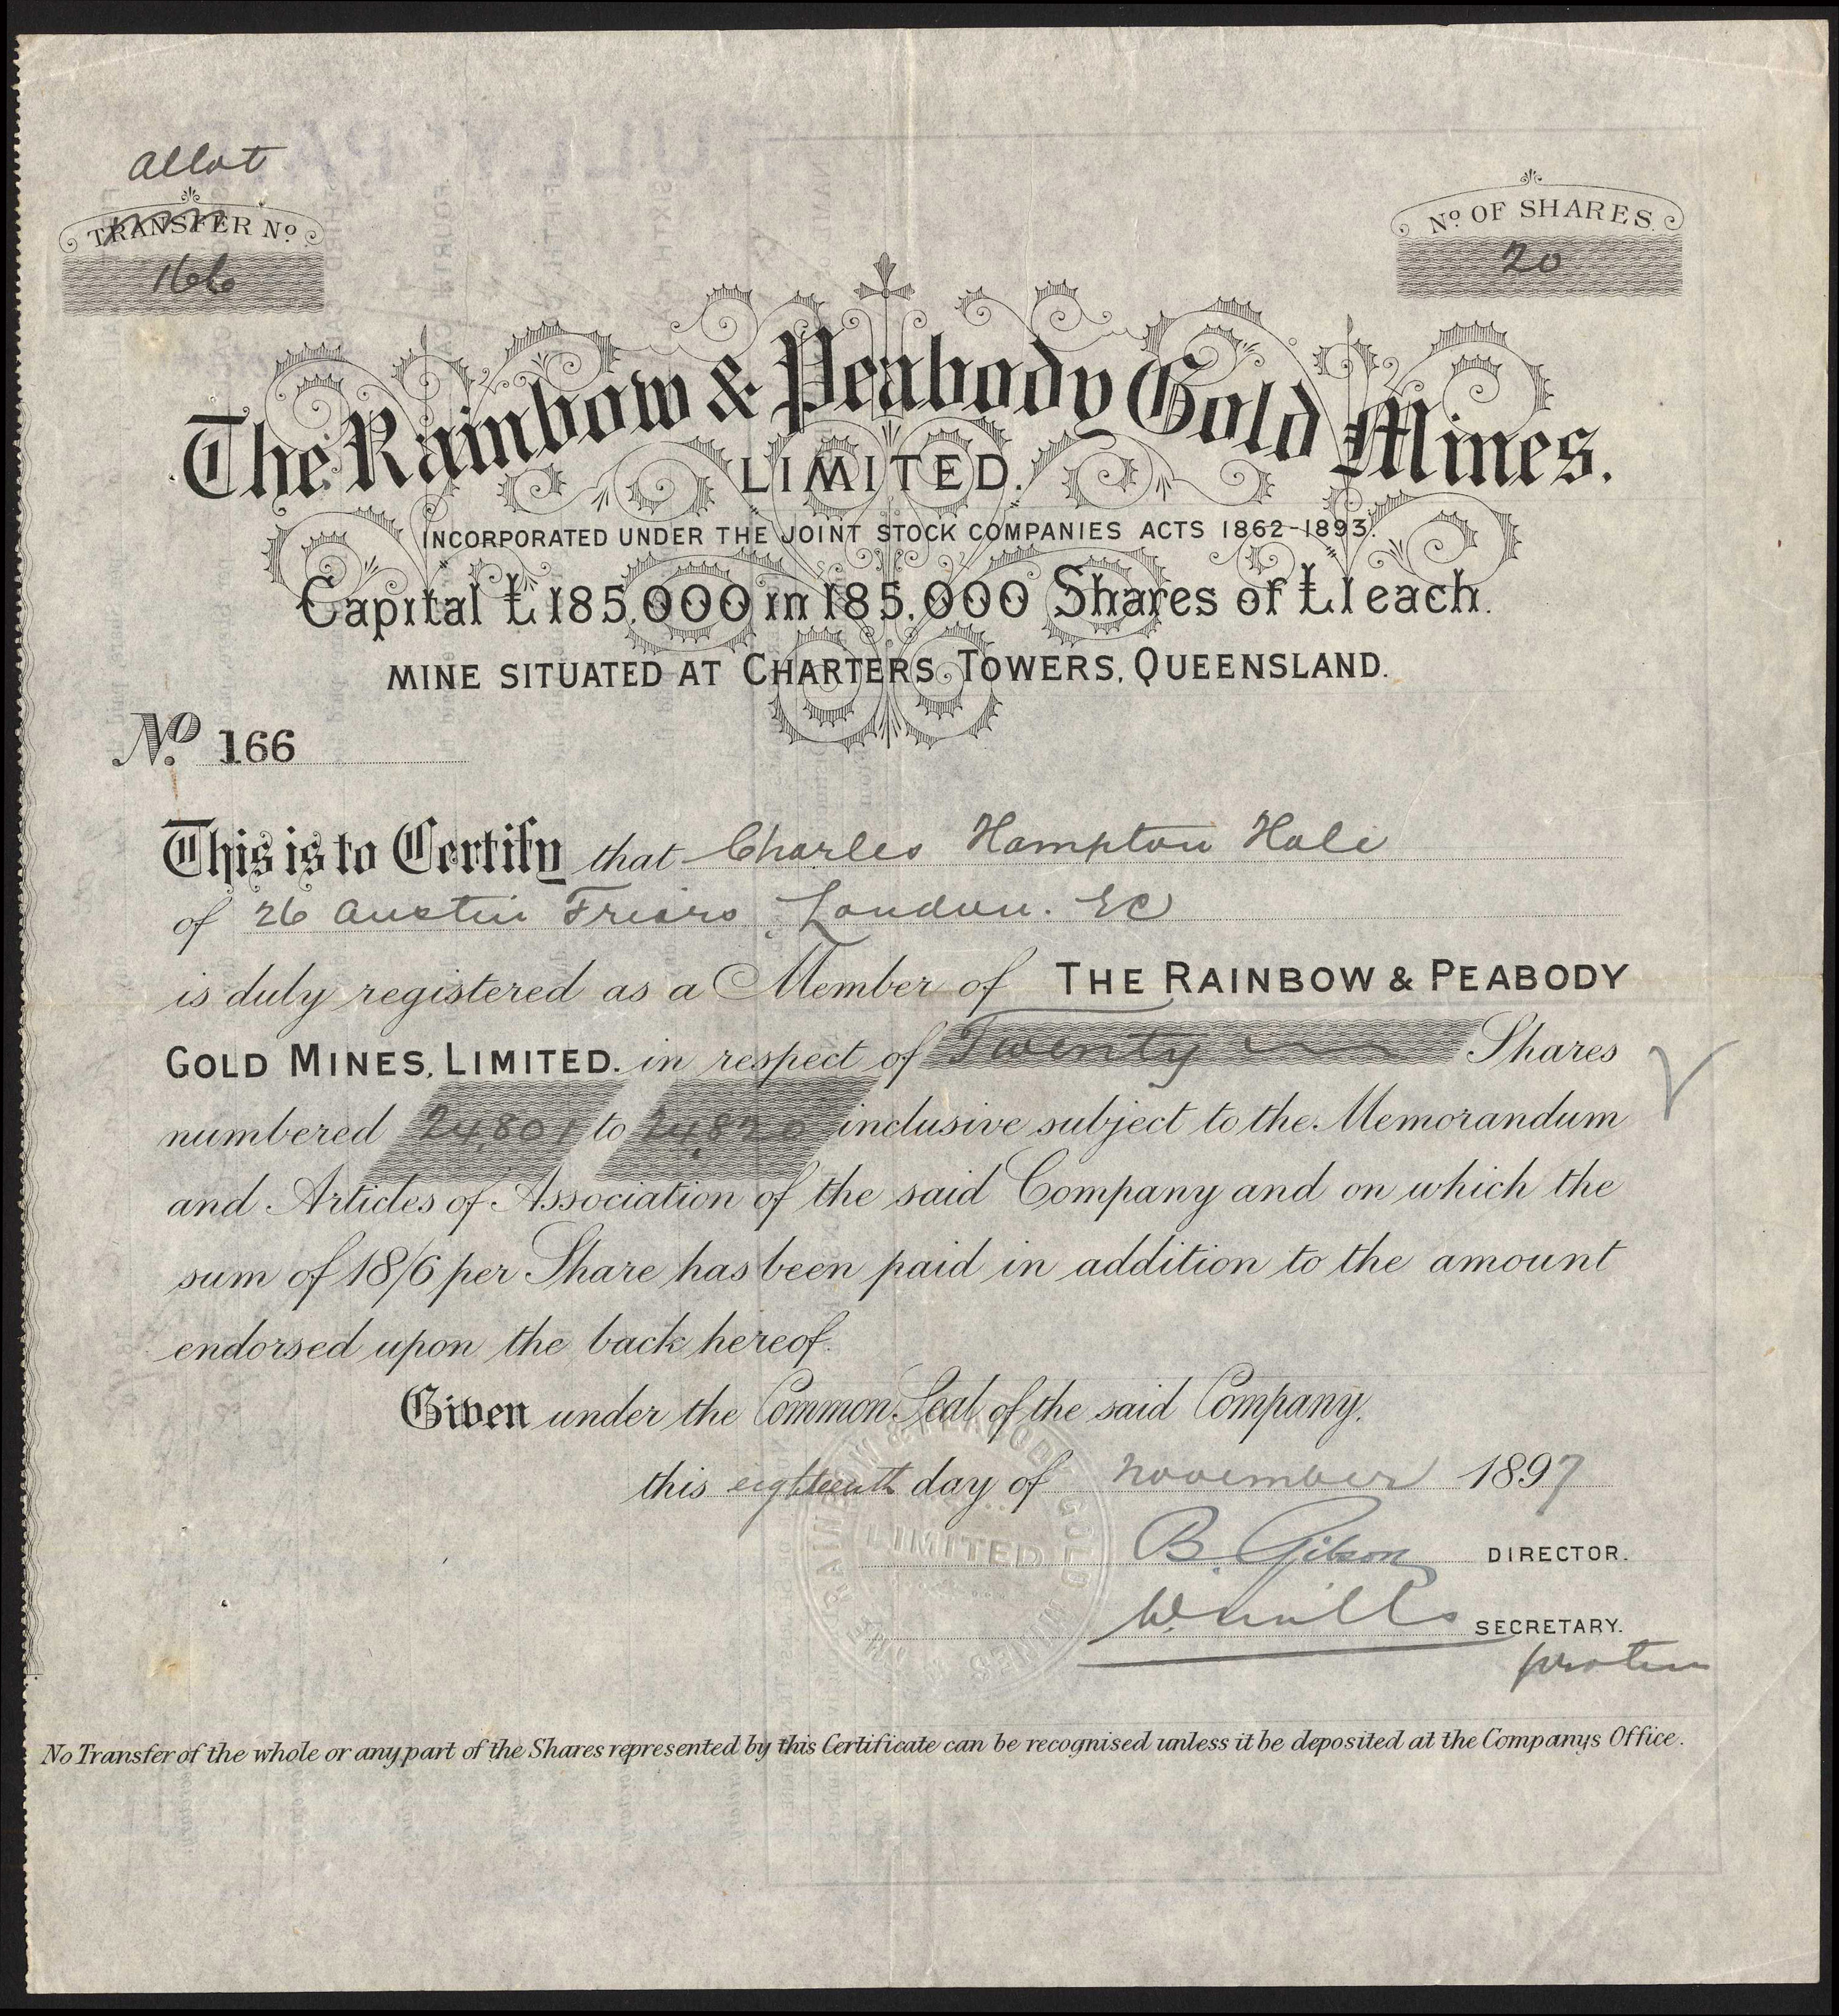 allot
TRANSFER No.
166
No. OF SHARES.
20
The Rainbow & Peabody Gold Mines.
LIMITED.
INCORPORATED UNDER THE JOINT STOCK COMPANIES ACTS 1862-1893.
Capital £185,000 in 185,000 Shares of £1 each.
MINE SITUATED AT CHARTERS TOWERS, QUEENSLAND.
No. 166
This is to Certify that Charles Hampton Hale
of 26 Austin Friars, London. EC
is duly registered as a Member of THE RAINBOW & PEABODY
GOLD MINES, LIMITED. in respect of Twenty Shares
numbered 24,801 to 24,820 inclusive subject to the Memorandum
and Articles of Association of the said Company and on which the
sum of 18/6 per Share has been paid in addition to the amount
endorsed upon the back hereof.
Given under the Common Seal of the said Company.
this eighteenth day of November 1897
B. Gibson DIRECTOR.
W. Mills SECRETARY.
pro tem
THE RAINBOW & PEABODY GOLD MINES
LIMITED
No Transfer of the whole or any part of the Shares represented by this Certificate can be recognised unless it be deposited at the Companys Office.